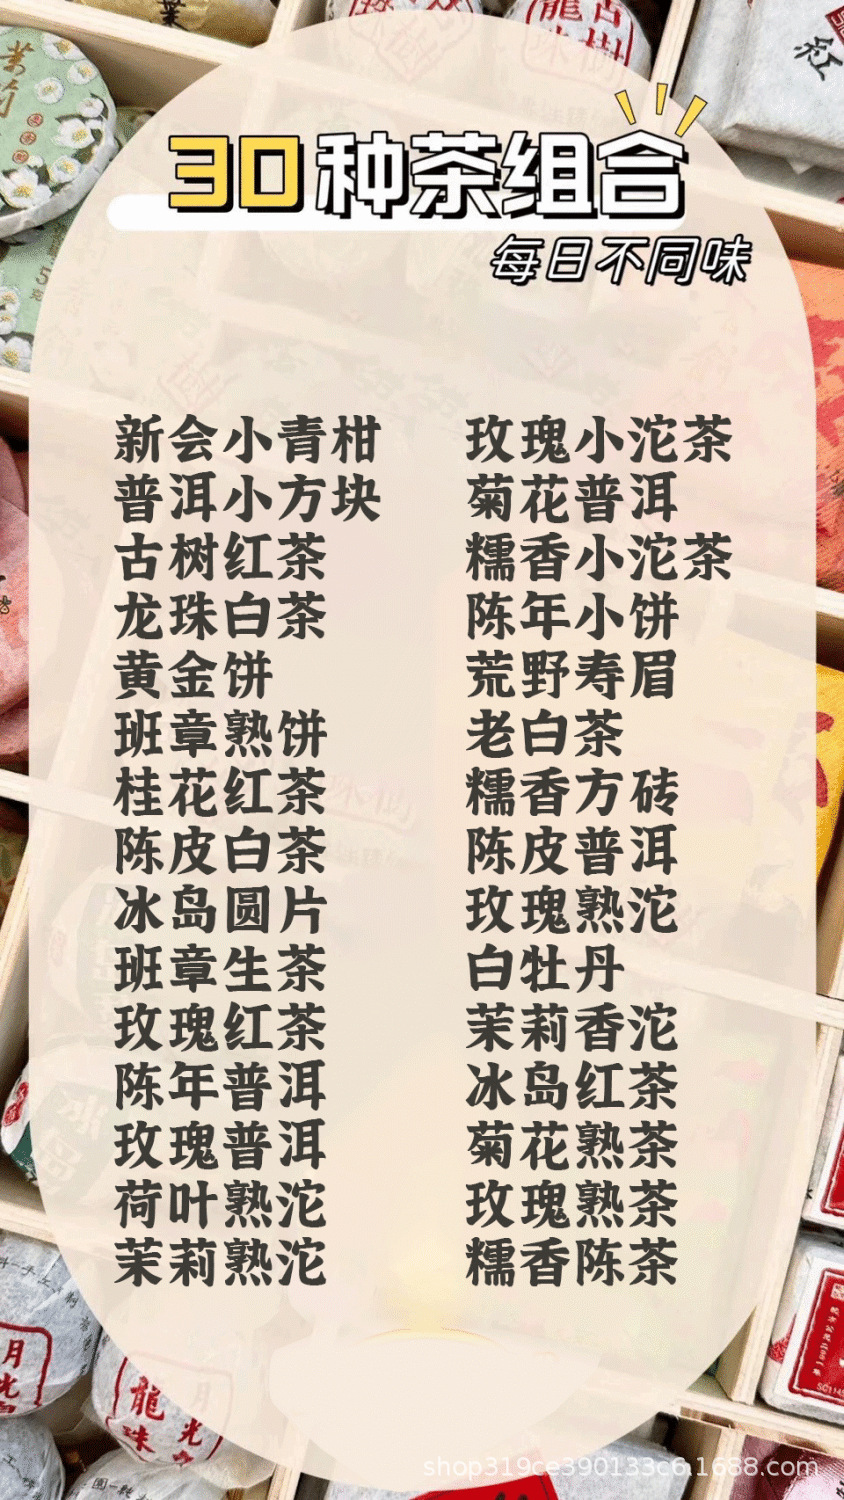 30种茶组合
每日不同味
新会小青柑
普洱小方块
古树红茶
龙珠白茶
黄金饼
班章熟饼
桂花红茶
陈皮白茶
冰岛圆片
班章生茶
玫瑰红茶
陈年普洱
玫瑰普洱
荷叶熟沱
茉莉熟沱
玫瑰小沱茶
菊花普洱
糯香小沱茶
陈年小饼
荒野寿眉
老白茶
糯香方砖
陈皮普洱
玫瑰熟沱
白牡丹
茉莉香沱
冰岛红茶
菊花熟茶
玫瑰熟茶
糯香陈茶
龍珠
古樹
紅
茉莉
月光
龍珠
月光
shop319ce390133c6.1688.com